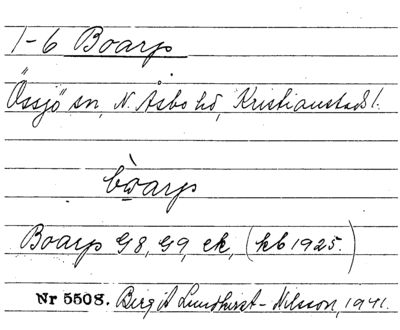 1-6 Boarp
Össjö sn, N. Åsbo hd, Kristianstads l.
bòarp
Boarp G8, G9, ek, (kb 1925.)
Nr 5508. Birgit Lundhqvist-Nilsson, 1941.